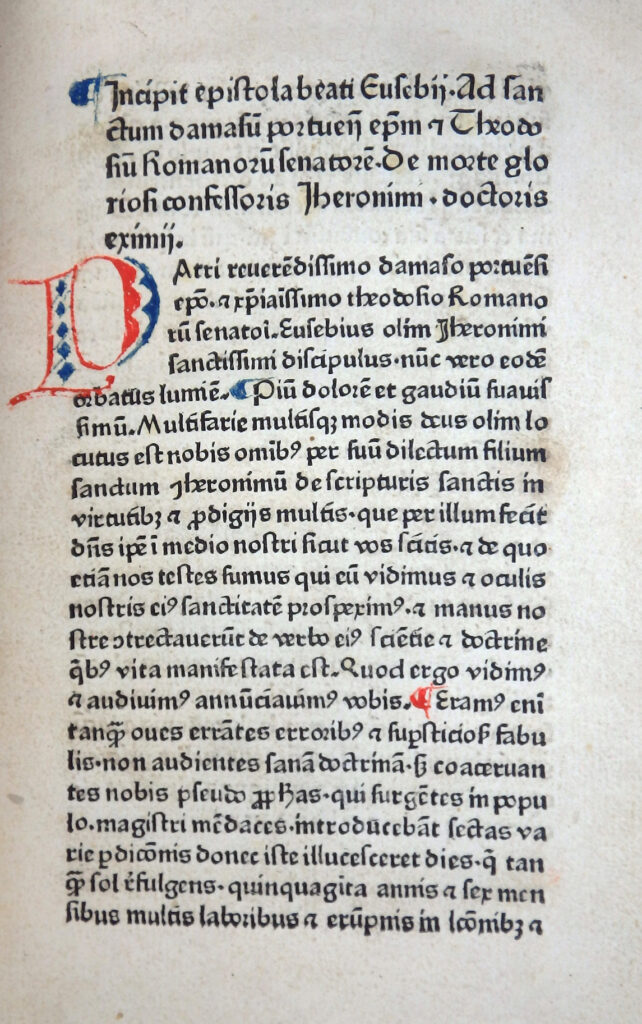 ¶ Incipit epistola beati Eusebij. Ad san
ctum damasū portueñ ep̄m ⁊ Theodo
siū Romanorū senatorē. De morte glo
riosi confessoris Jheronimi . doctoris
eximij.
PAtri reuerēdissimo damaso portuēsi
ep̄o. ⁊ xp̄iaīssimo theodosio Romano
rū senatoī. Eusebius olim Jheronimi
sanctissimi discipulus. nūc vero eodē
orbatus lumīe. ¶ Piū dolorē et gaudiū suauis
simū. Multifarie multisqꝫ modis deus olim lo
cutus est nobis omībꝰ per suū dilectum filium
sanctum Jheronimū de scripturis sanctis in
virtutibꝫ ⁊ ꝓdigijs multis. que per illum fecit
dn̄s ip̄e ī medio nostri sicut vos scītis. ⁊ de quo
etiā nos testes sumus qui eū vidimus ⁊ oculis
nostris eiꝰ sanctitatē prospeximꝰ. ⁊ manus no
stre ↄtrectauerūt de verbo eiꝰ sciētie ⁊ doctrine
q̄bꝰ vita manifestata est. Quod ergo vidimꝰ
⁊ audiuimꝰ annūciauimꝰ vobis. ¶ Eramꝰ enī
tanqȝ̄ oues errātes erroribꝰ ⁊ suꝑsticiosꝭ fabu
lis. non audientes sanā doctrinā. sꝫ coaceruan
tes nobis pseudo ꝓpħas. qui surgētes in popu
lo. magistri mēdaces. introducebāt sectas va
rie ꝑdicōnis donec iste illucesceret dies. q̄ tan
qȝ̄ sol rēfulgens. quinquagīta annis ⁊ sex men
sibus multis laboribus ⁊ erūpnis in lcōnibꝫ ⁊